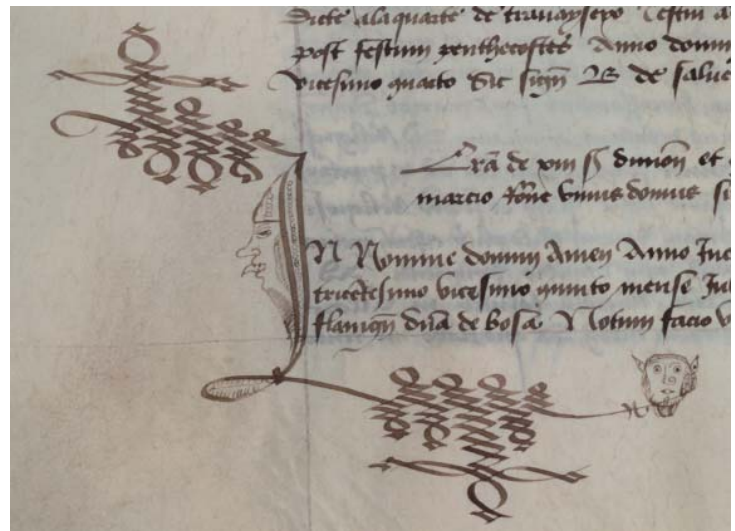 Dicte ala quarte de travaysero Testin a
post festum penthecostes Anno domin
vicesimo quarto Sic sign B de saluc
Lrã de xiii s dimion et
marcio rõne unius domus si
IN Nomine domini Amen Anno Inc
tricetesimo vicesimo quinto mense Jul
flanign dñã de bosã Notum facio v